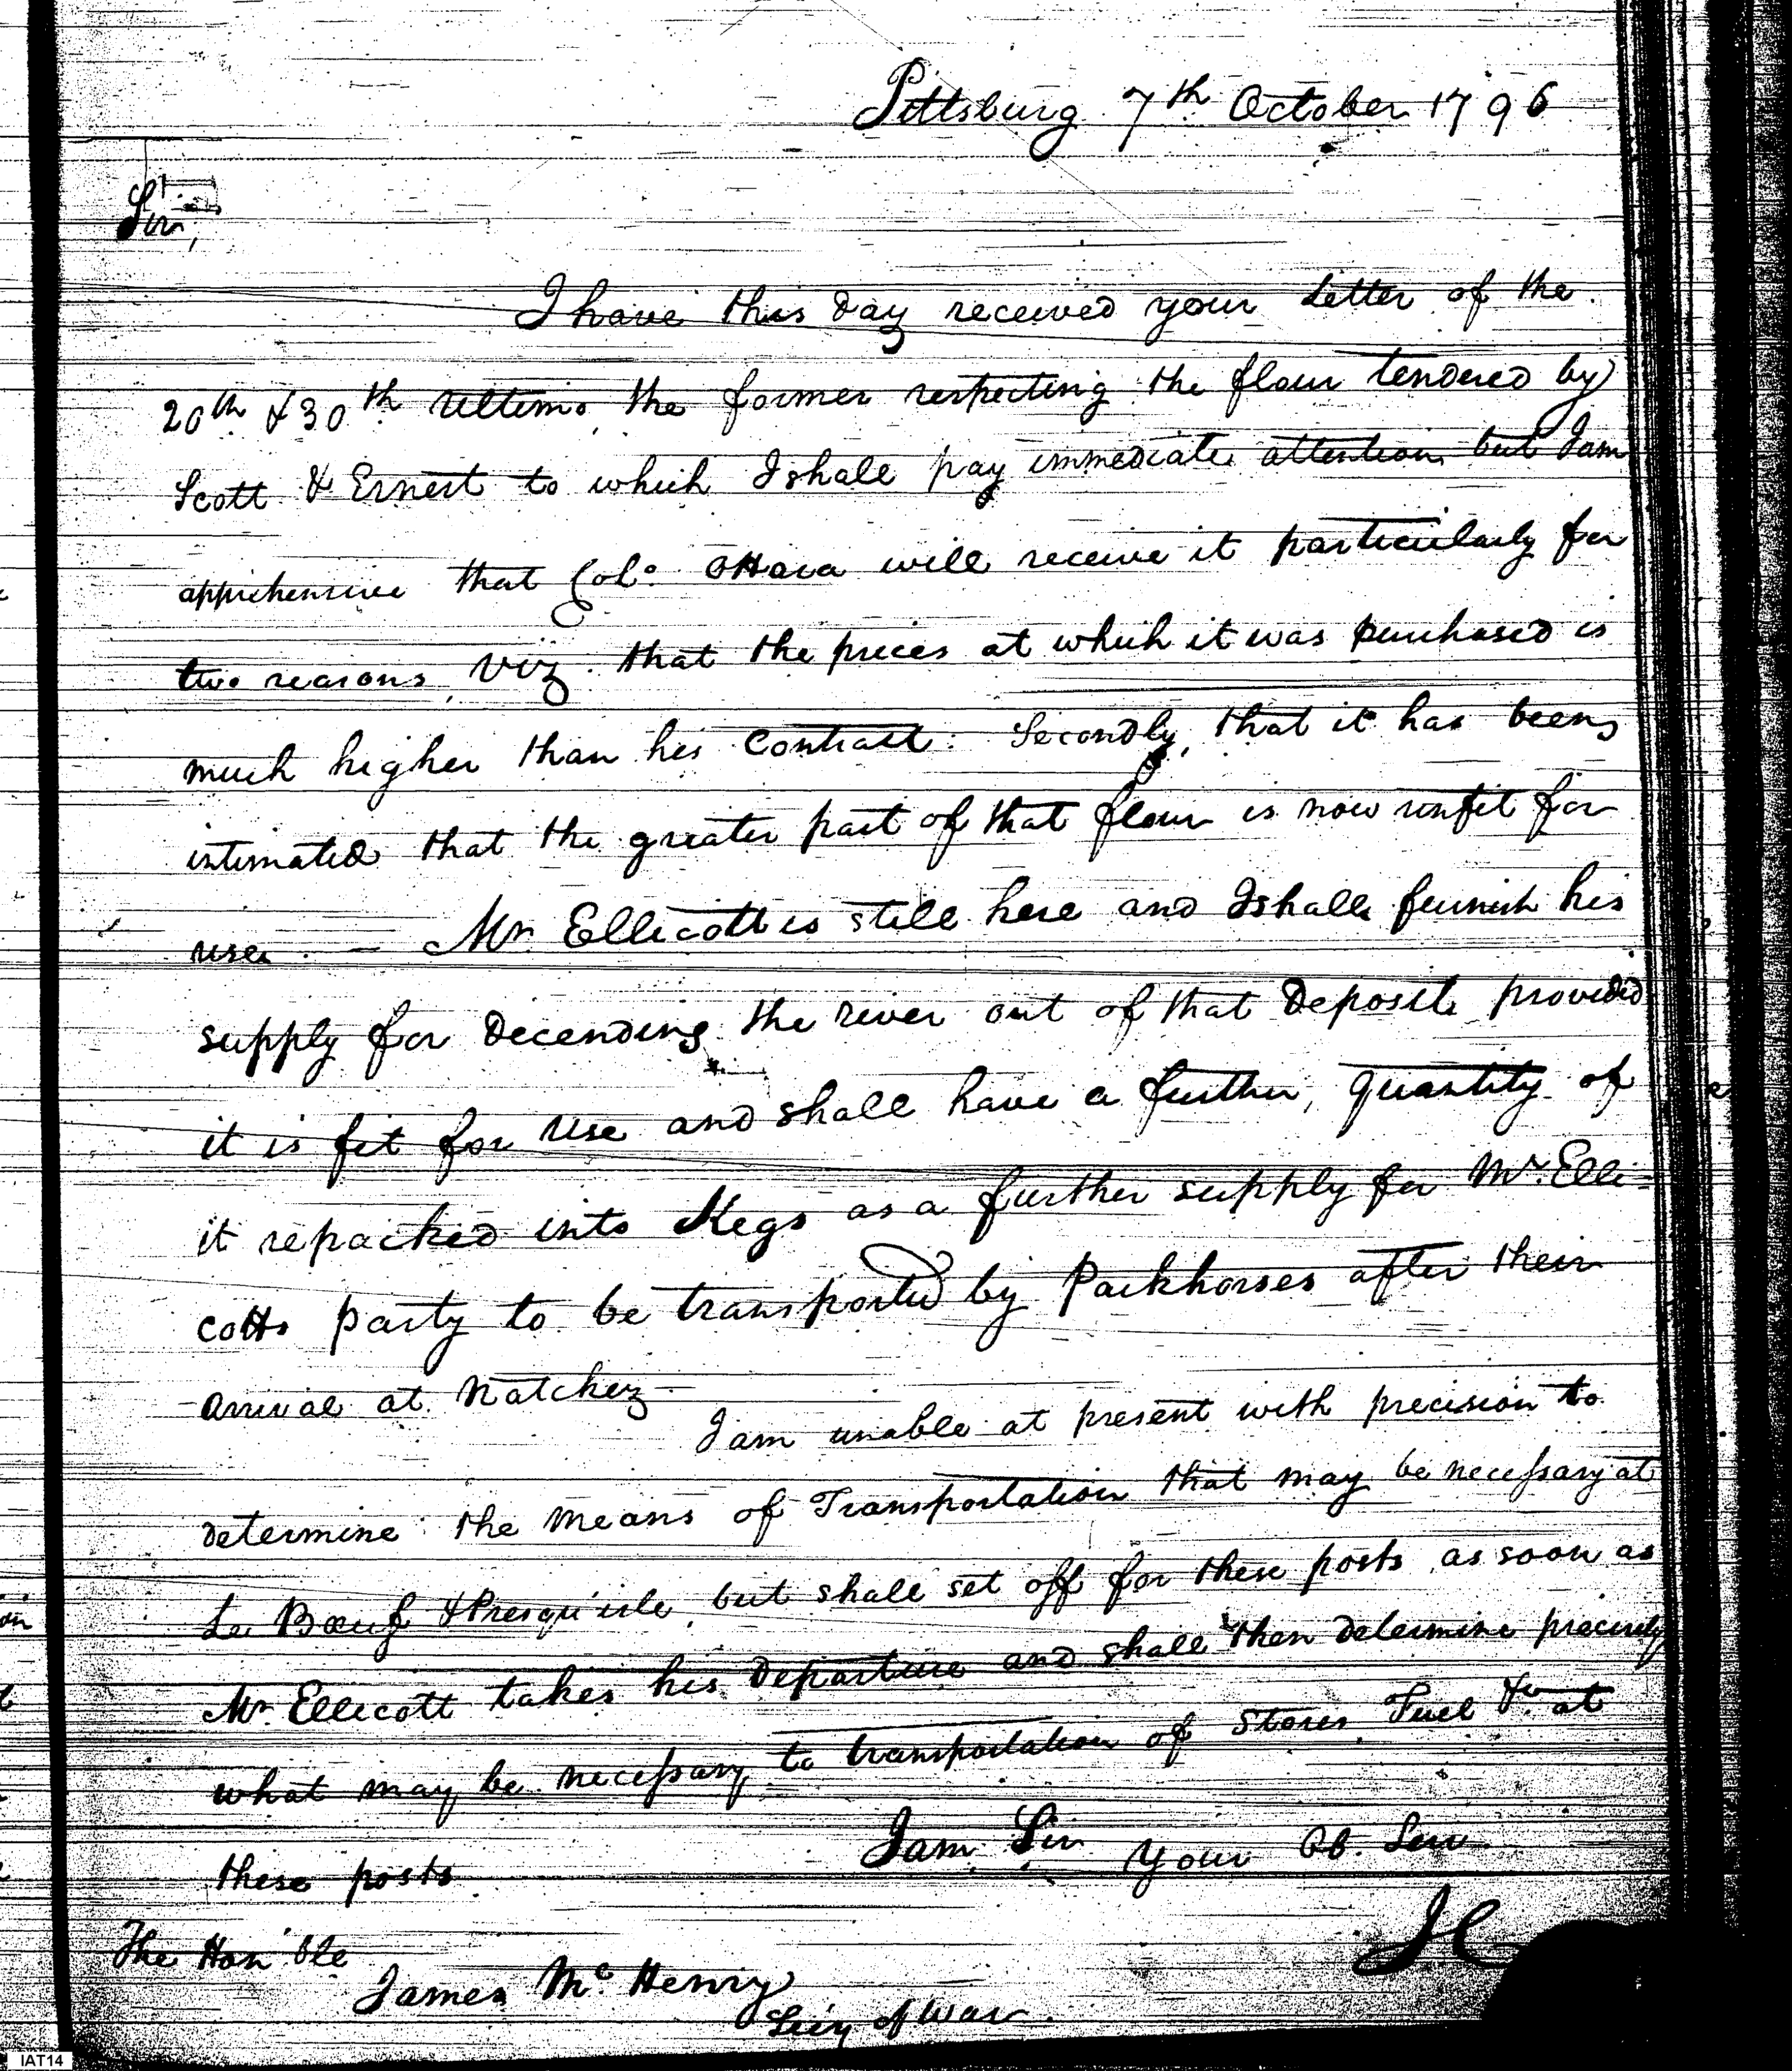 Pittsburg 7th October 1796
Sir,
I have this day received your Letter of the
20th & 30th Ultimo, the former respecting the flour tendered by
Scott & Ernest to which I shall pay immediate attention but I am
apprehensive that Colo. OHara will receive it particularly for
two reasons, Viz. that the prices at which it was purchased is
much higher than his Contract. Secondly, that it has been
intimated that the greater part of that flour is now unfit for
use. — Mr Ellicott is still here and I shall furnish his
supply for Decending the river out of that Deposit provided
it is fit for use and shall have a further, quantity of
it repacked into Kegs as a further supply for Mr. Elli=
cotts party to be transported by Packhorses after their
arrival at Natchez
I am unable at present with precision to
determine the means of Transportation that may be necessary at
Le Bœuf & Presqu'isle, but shall set off for these posts as soon as
Mr. Ellicott takes his Departure and shall then determine precisely
what may be necessary to transportation of Stores Fuel &c. at
these posts
I am Sir Your Ob. Serv
The Hon'ble
James McHenry
Secy of War.
IAT14